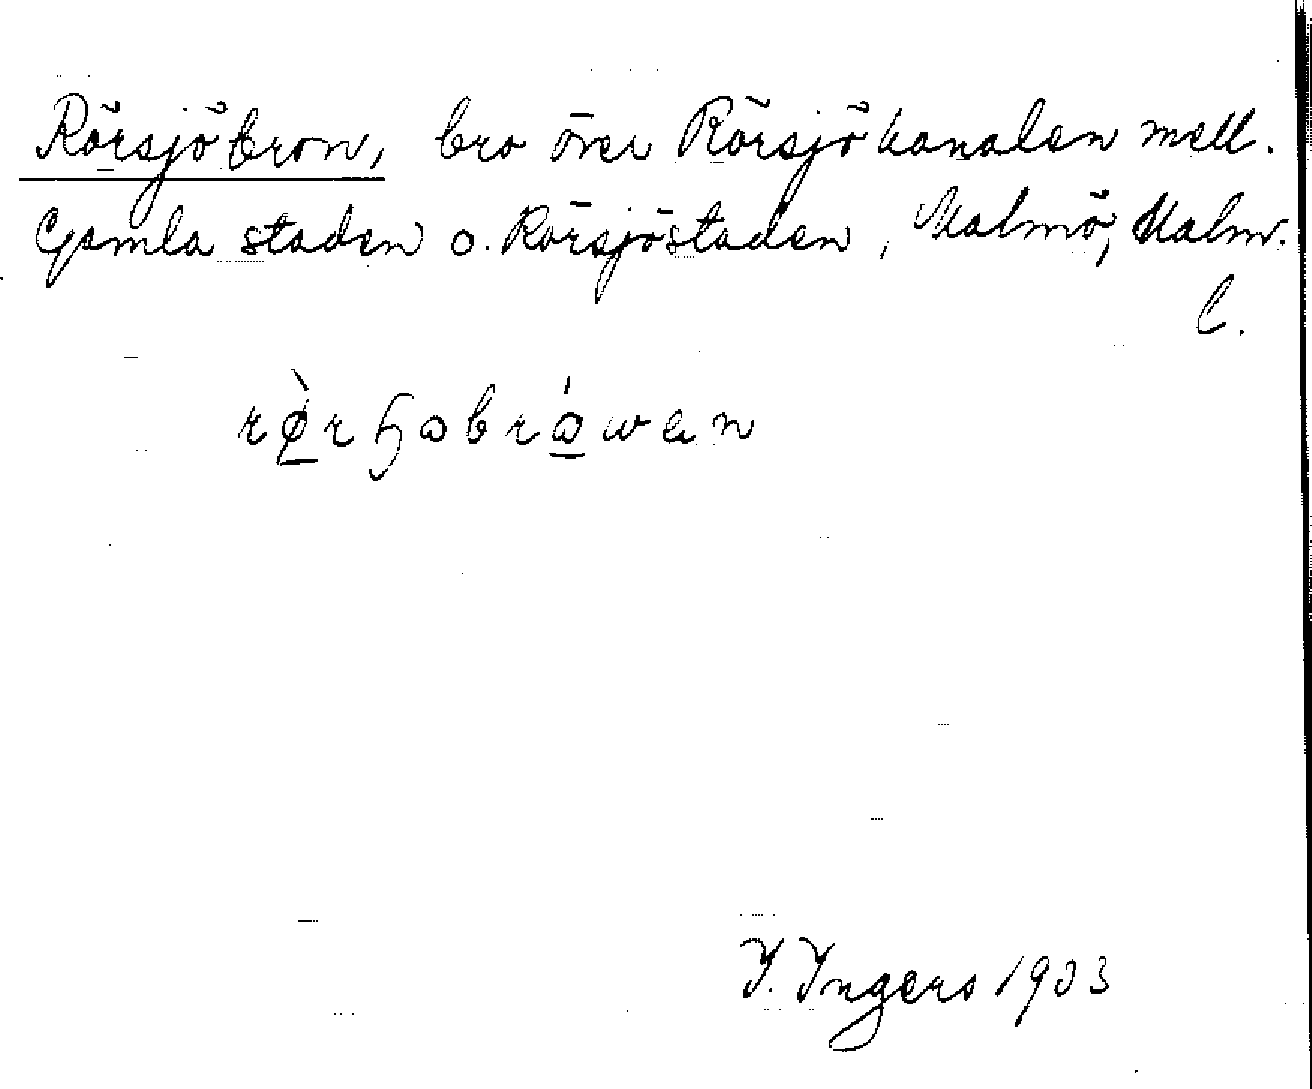 Rörsjöbron, bro över Rörsjökanalen mell.
Gamla staden o. Rörsjöstaden, Malmö, Malm.
C.
I. Ingers 1933